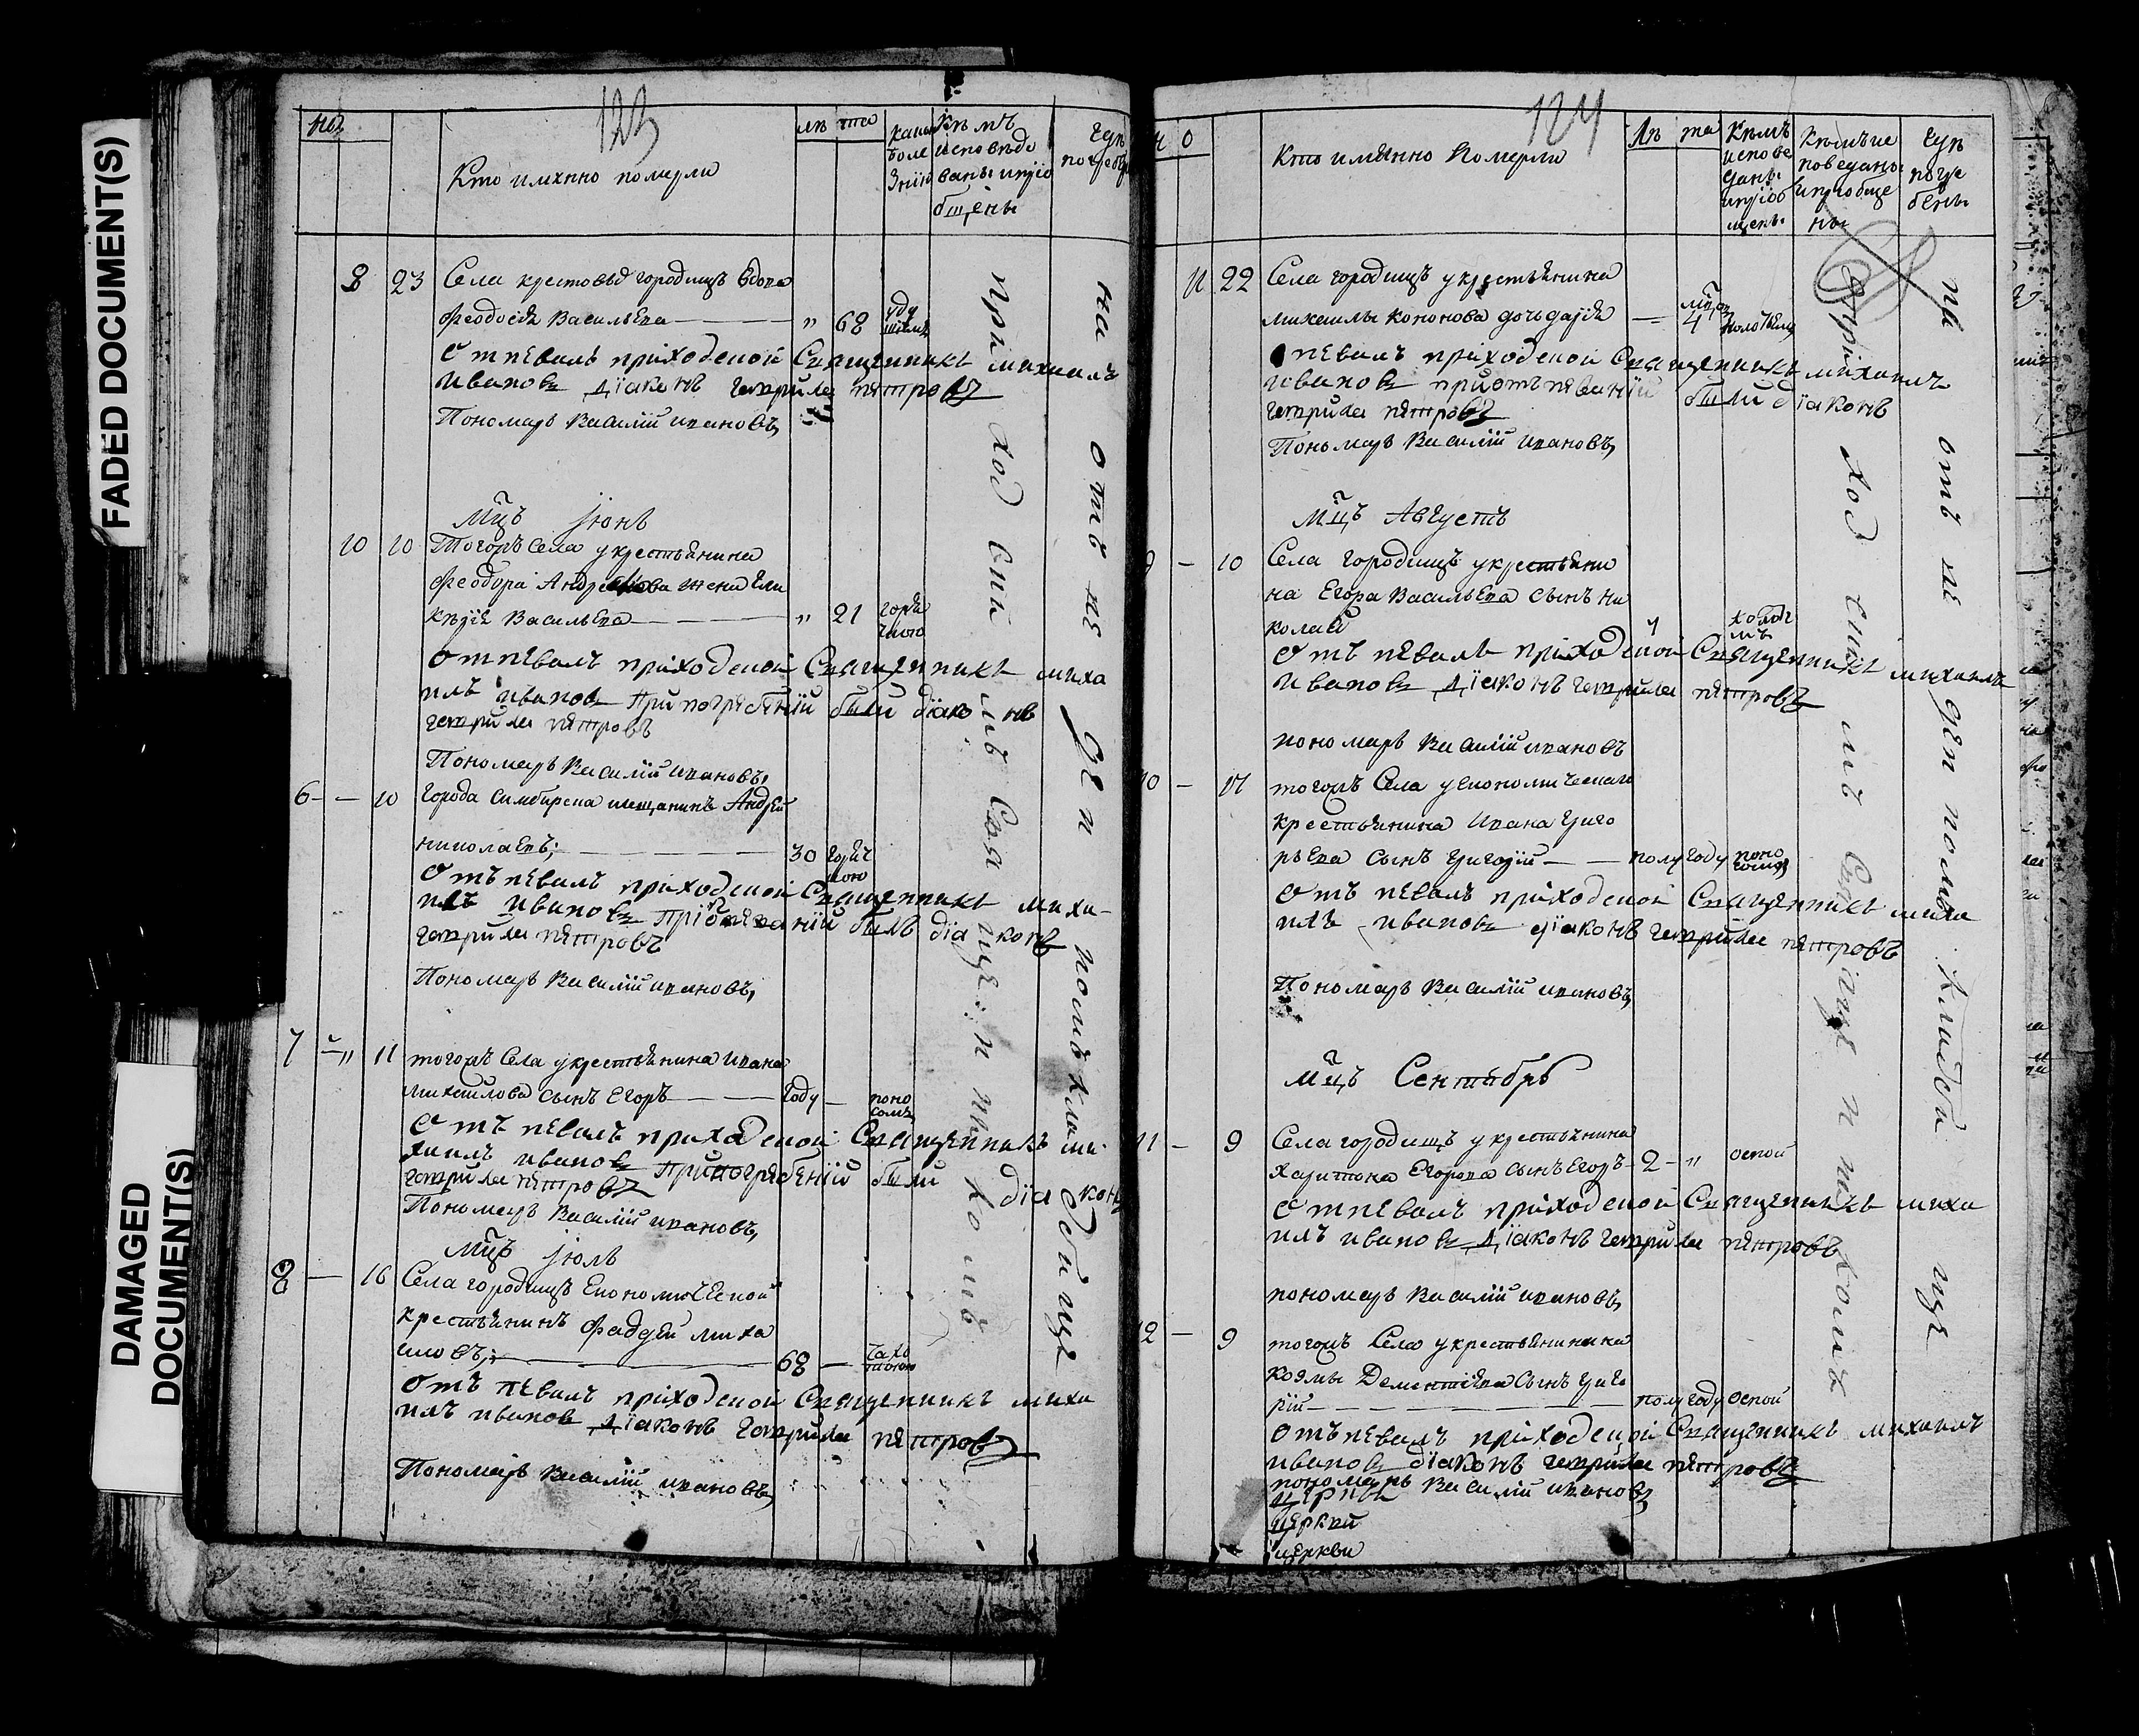 FADED DOCUMENT(S)
DAMAGED
DOCUMENT(S)
123
Кто имянно померли
лѣ та
Кѣмъ
исповѣдо
ваны и пріо
бщены
8 23 Села крестовыхъ городищъ вдова
Феодосія Васильева — " 68 уду
шьемъ
Отпевалъ приходской Священникъ михаилъ
ивановъ діаконъ гаврила пѣтровъ
Пономарь Василій ивановъ,
Мцъ іюнь
10 10 Тогожъ села у крестьянина
Феодора Андреянова жена гли
керія Васильева — " 21 горя
чкою
Отпевалъ приходской Священникъ миха
илъ ивановъ При погребеніи были діаконъ
гаврила пѣтровъ
Пономарь Василій ивановъ,
6 — 10 города Симбирска мещанинъ Андрей
николаевъ; — 30 горяч
кою
Отъпевалъ приходской Священникъ миха-
илъ ивановъ При отпеваніи былъ діаконъ
гаврила пѣтровъ
Пономарь Василій ивановъ,
7 — " 11 тогожъ Села у крестьянина ивана
михайлова сынъ Егоръ — году — поно
сомъ
Отъ певалъ приходской Священникъ ми
хаилъ ивановъ При погрѣбеніи были діаконъ
гаврила пѣтровъ
Пономарь Василій ивановъ,
Мцъ іюль
8 — 16 Села городищъ Економической
крестьянинъ Фаддей миха
иловъ; — 68 — чахо
ткою
Отъ певалъ приходской Священникъ миха
илъ ивановъ діаконъ гаврила пѣтровъ
Пономарь Василій ивановъ,
приходскимъ Священникомъ
на отведенномъ кладбище
124
Ч О
Кто имянно Померли
Лѣ та
Кѣмъ
испове
даны
и пріоб
щены
Кѣмъ ис
поведаны
и приобще
ны
Гдѣ
погре
бены
11 22 Села городищъ у крестьянина
михаилы кононова дочь дарія — 4
Отпевалъ приходской Священникъ михаилъ
ивановъ при отъпеваніи были діаконъ
гаврила пѣтровъ
Пономарь Василій ивановъ,
мцъ Августъ
9 — 10 Села городищъ у крестьяни
на Егора Васильева сынъ ни
колай
Отъ певалъ приходской Священникъ михаилъ
ивановъ діаконъ гаврила пѣтровъ
пономарь Василій ивановъ
10 — 17 тогожъ Села у економическаго
крестьянина ивана григо
рьева сынъ григорій — полу году поно
сомъ
Отъ певалъ приходской Священникъ миха
илъ ивановъ діаконъ гаврила пѣтровъ
Пономарь Василій ивановъ,
мцъ Сентябрь
11 — 9 Села городищъ у крестьянина
Харитона Егорова сынъ Егоръ — 2 — " оспой
Отпевалъ приходской Священникъ миха
илъ ивановъ діаконъ гаврила пѣтровъ
пономарь Василій ивановъ,
12 — 9 тогожъ Села у крестьянина
Козмы Дементіева сынъ григо
рій — полу году оспой
Отъпевалъ приходской Священникъ михаилъ
ивановъ діаконъ гаврила пѣтровъ
пономарь Василій ивановъ
церкви
церкви
приходскимъ Священникомъ
на отведенномъ кладбище